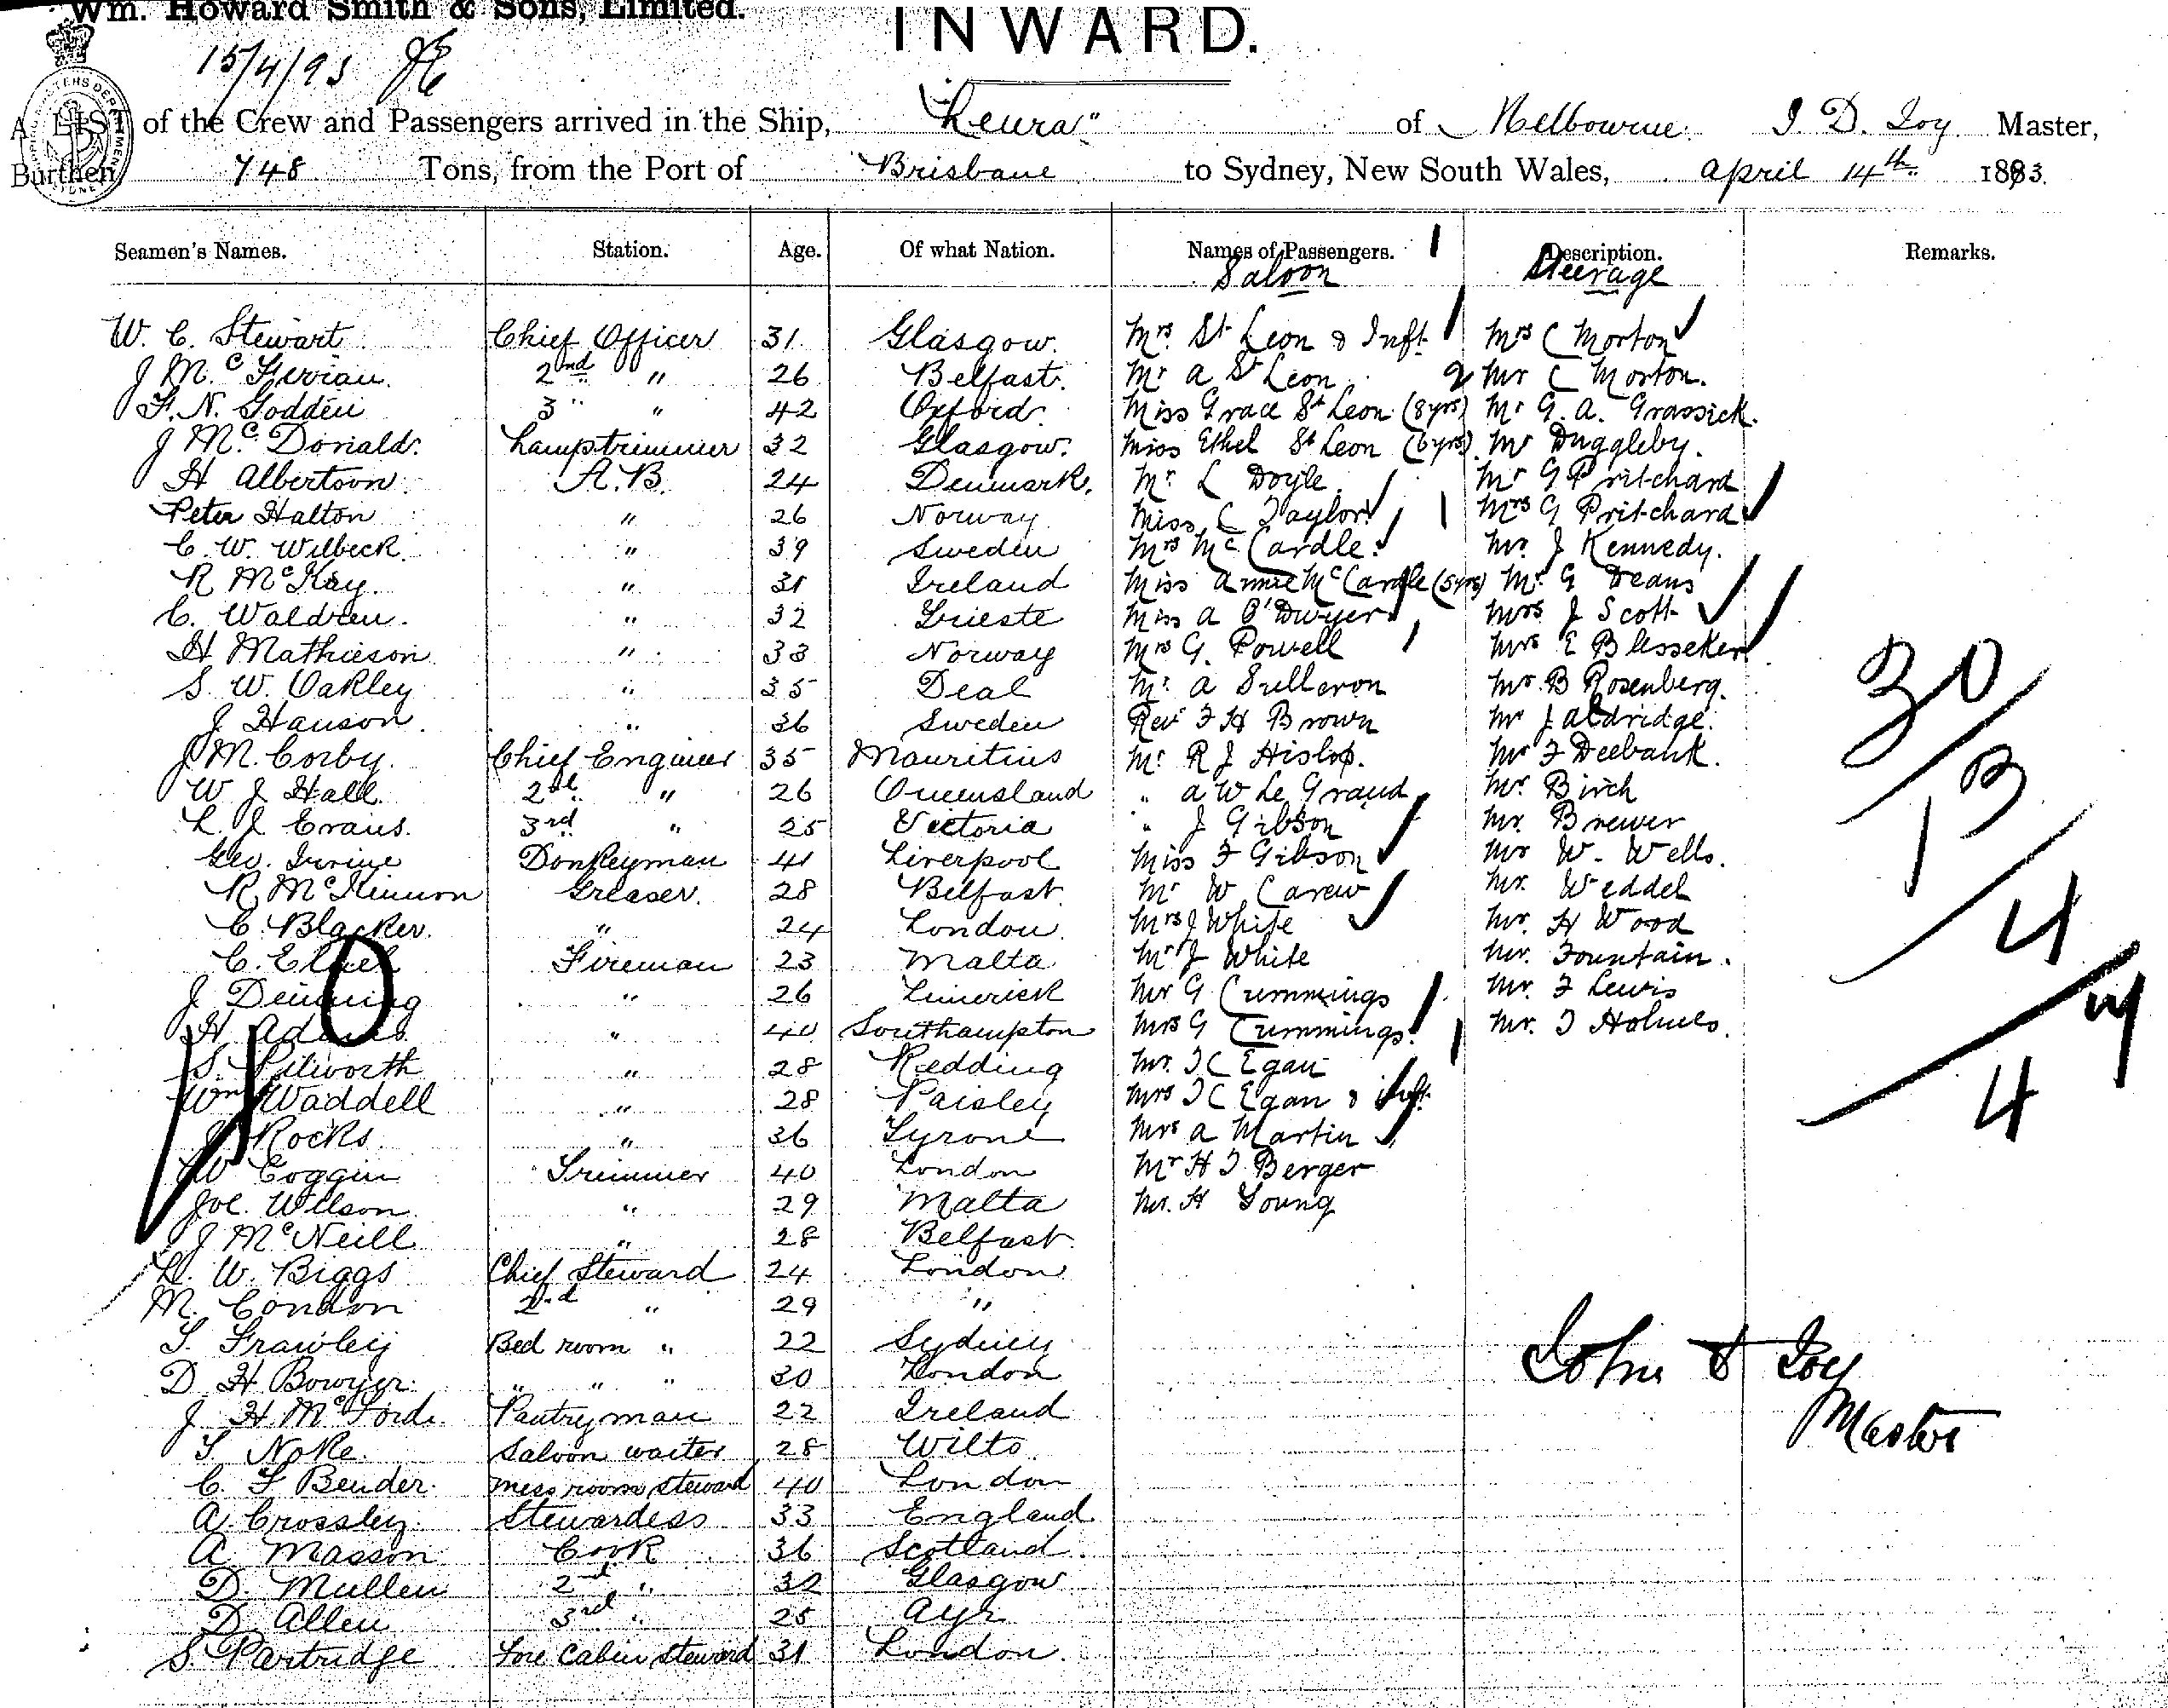 Wm. Howard Smith & Sons, Limited.
INWARD.
15/4/93
A LIST of the Crew and Passengers arrived in the Ship, "Leura" of Melbourne. J. D. Joy Master,
Burthen 748 Tons, from the Port of Brisbane to Sydney, New South Wales, April 14th 1893.
Seamen's Names. Station. Age. Of what Nation. Names of Passengers. Description. Remarks.
Saloon Steerage
W. C. Stewart Chief Officer 31 Glasgow. Mrs. St Leon & Inft. Mrs C Morton
J Mc. 2nd " 26 Belfast. Mr A St Leon 2 Mr C Morton.
F. N. Godden 3 " 42 Oxford. Miss Grace St Leon (8yrs) Mr G. A. Grassick.
J Mc. Donald. Lamptrimmer 32 Glasgow. Miss Ethel St Leon (6yrs) Mr Duggleby.
H Albertson A.B. 24 Denmark. Mr L Doyle. Mr G Pritchard
Peter Halton " 26 Norway Miss C Taylor Mrs G Pritchard
C. W. Wilbeck " 39 Sweden Mrs Mc Cardle. Mr. J Kennedy.
R McKay. " 31 Ireland Miss Annie Mc Cardle (5yrs) Mr. G Deans
C. Waldren. " 32 Trieste Miss A O'Dwyer Mrs J Scott
H Mathieson " 33 Norway Mrs G. Powell Mrs E Blesseker
S. W. Oakley " 35 Deal Mr. A Sulleron Mr. B Rosenberg.
J Hanson. " 36 Sweden Rev F H Brown Mr J Aldridge.
J M. Corby. Chief Engineer 35 Mauritius Mr R J Hislop. Mr F Deebank.
W J Hall. 2nd " 26 Queensland " A W Le Grand Mr. Birch
L. J. Evans. 3rd " 25 Victoria " J Gibson Mr. Brewer
Geo. Irvine Donkeyman 41 Liverpool Miss F Gibson Mr W. Wells.
R McKinnon Greaser. 28 Belfast Mr W Carew Mr. Weddel
C. Blacker. " 24 London. Mrs J White Mr. H Wood
C. Fireman 23 Malta Mr J White Mr. Fountain.
J Denning " 26 Limerick Mr G Cummings Mr. F Lewis
H Adams " 40 Southampton Mrs G Cummings. Mr. T Holmes.
S. Pilworth " 28 Redding Mr. T C Egan
Wm Waddell " 28 Paisley Mrs T C Egan & Inft.
J Rocks. " 36 Tyrone Mrs A Martin
W Coggin Trimmer 40 London Mr H T Berger
Joe. Wilson. " 29 Malta Mr. H Young
J McNeill " 28 Belfast.
H. W. Biggs Chief Steward 24 London
M. Condon 2nd " 29 "
T. Frawley Bed room " 22 Sydney
D H Bowyer. " " " 30 London
J H McFord. Pantryman 22 Ireland
T. Noke. Saloon waiter 28 Wilts
C. F Bender. Mess room steward 40 London
A. Crossley. Stewardess 33 England
A Masson Cook 36 Scotland
D. Mullen 2nd " 32 Glasgow
D Allen 3rd " 25 Ayr
S. Partridge Fore Cabin Steward 31 London.
30
13
4
4
10
John D Joy
Master